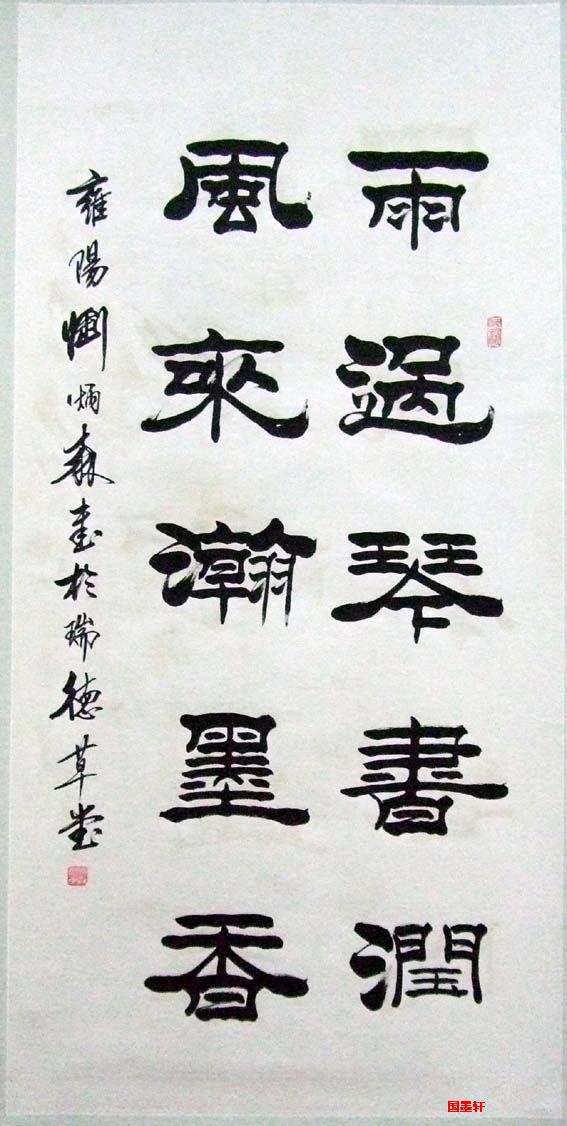 雨過琴書潤
風來瀚墨香
雍陽劉炳森書於瑞德草堂
国墨轩